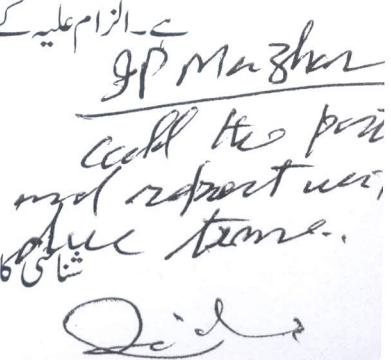 ہے۔ الزام علیہ کے
IP Mazhar
call the par
and report wi
due time.
شناختی کا